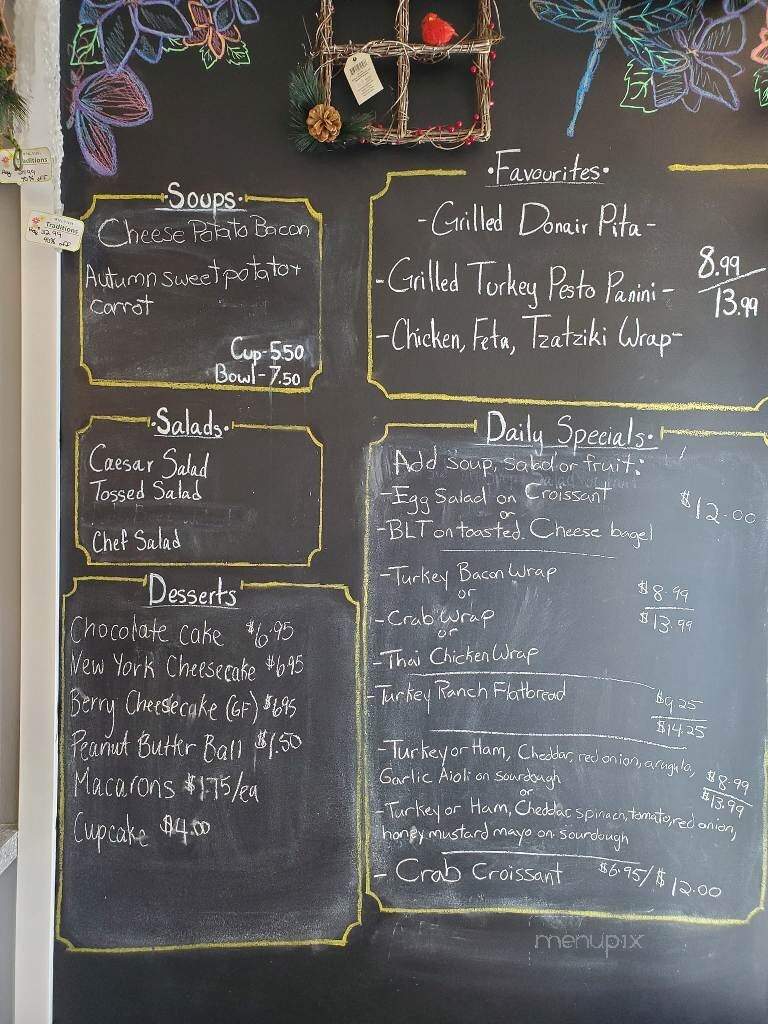 Traditions
90% OFF
Traditions
Reg 32.99
90% OFF
·Soups·
Cheese Potato Bacon
Autumn sweet potato +
carrot
Cup-5.50
Bowl-7.50
·Salads·
Caesar Salad
Tossed Salad
Chef Salad
Desserts
Chocolate cake $6.95
New York Cheesecake $6.95
Berry Cheesecake (GF) $6.95
Peanut Butter Ball $1.50
Macarons $1.75/ea
Cupcake $4.00
·Favourites·
-Grilled Donair Pita-
-Grilled Turkey Pesto Panini-
8.99
13.99
-Chicken, Feta, Tzatziki Wrap-
Daily Specials·
Add soup, salad or fruit:
-Egg Salad on Croissant
or
$12.00
-BLT on toasted Cheese bagel
-Turkey Bacon Wrap
or
$8.99
-Crab Wrap
$13.99
or
-Thai Chicken Wrap
-Turkey Ranch Flatbread
$9.25
$14.25
-Turkey or Ham, Cheddar, red onion, arugula,
Garlic Aioli on sourdough
$8.99
or
$13.99
-Turkey or Ham, Cheddar spinach, tomato, red onion,
honey mustard mayo on sourdough
- Crab Croissant $6.95/$12.00
menupix